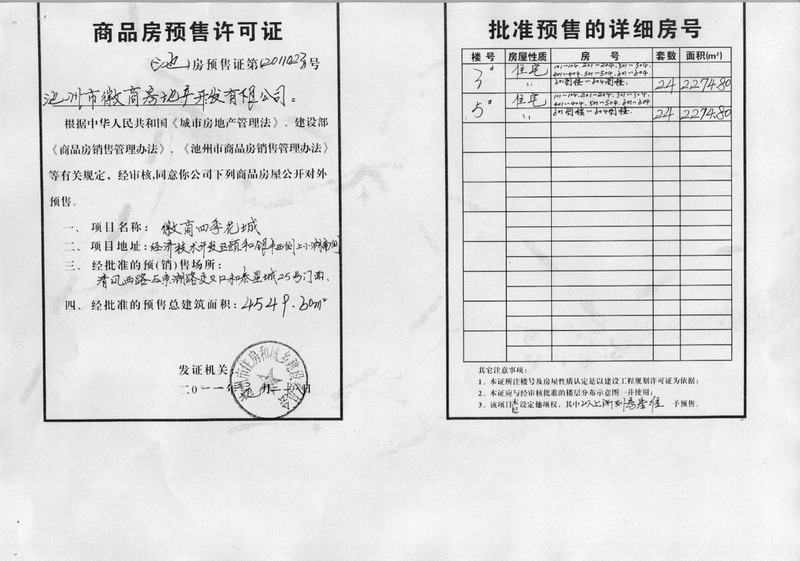 商品房预售许可证
(池)房预售证第(2011023)号
池州市徽商房地产开发有限公司。
根据中华人民共和国《城市房地产管理法》、建设部
《商品房销售管理办法》、《池州市商品房销售管理办法》
等有关规定，经审核,同意你公司下列商品房屋公开对外
预售。
一、项目名称：徽商四季花城
二、项目地址：经济技术开发区颐和银
三、经批准的预(销)售场所：
清风西路与東湖路交叉口和泰星城25号门面.
四、经批准的预售总建筑面积：4549.60m²
发证机关：
二〇一一年 月二十八日
批准预售的详细房号
楼号 房屋性质 房号 套数 面积(m²)
3# 住宅 101~104.201~204.301~304.
401~404.501~504.601~604
〃 601阁楼~604阁楼. 24 2274.80
5# 住宅 101~104.201~204.301~304.
401~404.501~504.601~604
〃 601阁楼~604阁楼. 24 2274.80
其它注意事项：
1．本证所注楼号及房屋性质认定是以建设工程规划许可证为依据；
2．本证应与经审核批准的楼层分布示意图一并使用；
3．该项目未设定他项权，其中以上 予预售。